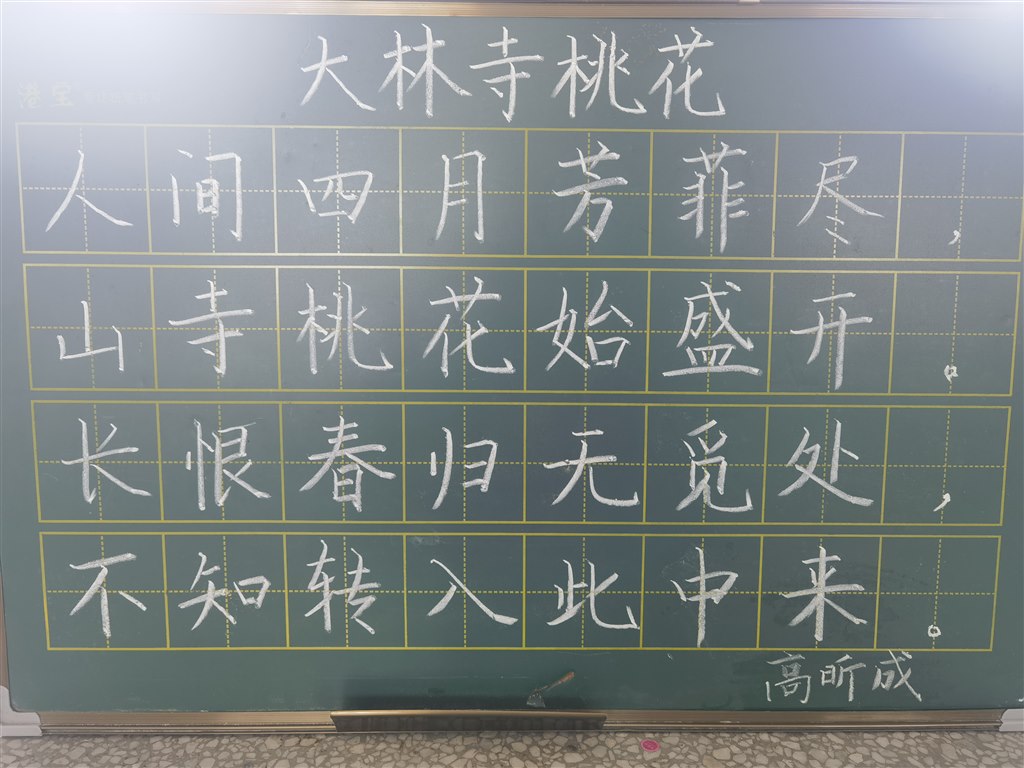 大林寺桃花
人间四月芳菲尽，
山寺桃花始盛开。
长恨春归无觅处，
不知转入此中来。
高昕成